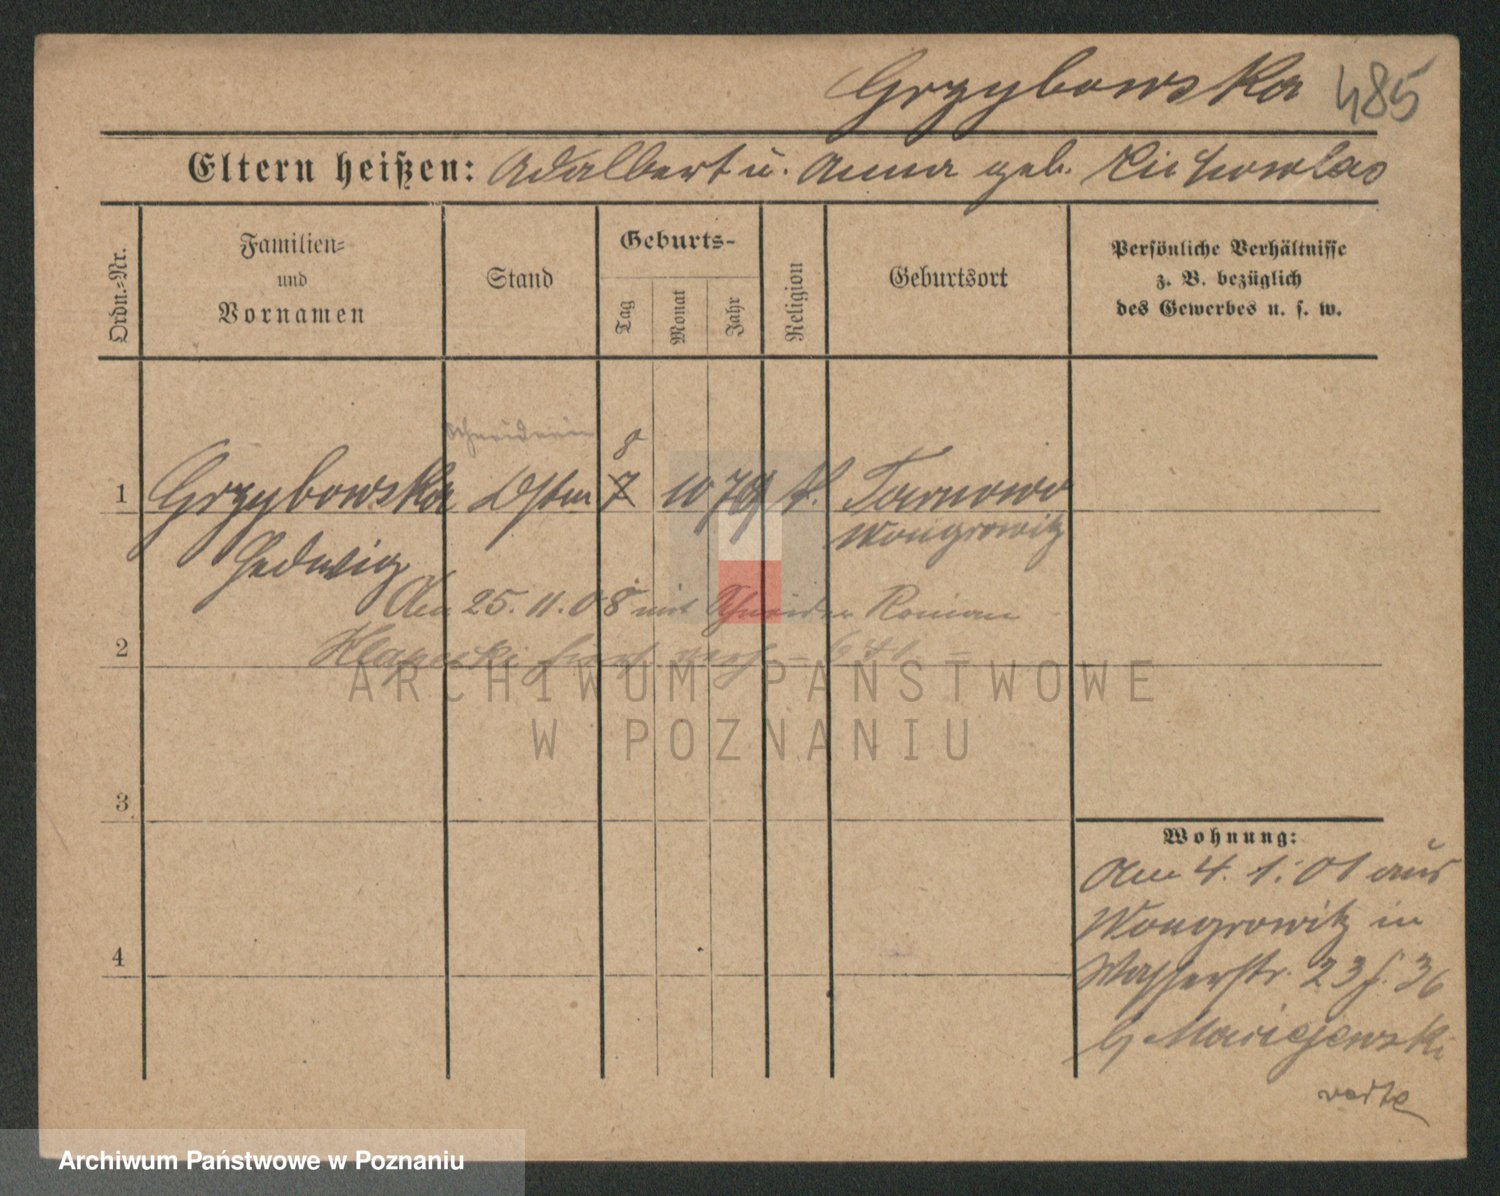 Grzybowska 485
Eltern heißen: Adalbert u. Anna geb.
Ordn.-Nr.
Familien-
und
Vornamen
Stand
Geburts-
Tag
Monat
Jahr
Religion
Geburtsort
Persönliche Verhältnisse
z. B. bezüglich
des Gewerbes u. s. w.
Schneiderin
8
1 Grzybowska 7 10 79 k. Tarnowo
Hedwig Wongrowitz
Am 25. 11. 08 mit Schneider Roman
2
3
4
Wohnung:
Am 4. 1. 01 aus
Wongrowitz in
Wasserstr. 23
b/ Maciejewski
verte
ARCHIWUM PAŃSTWOWE
W POZNANIU
Archiwum Państwowe w Poznaniu